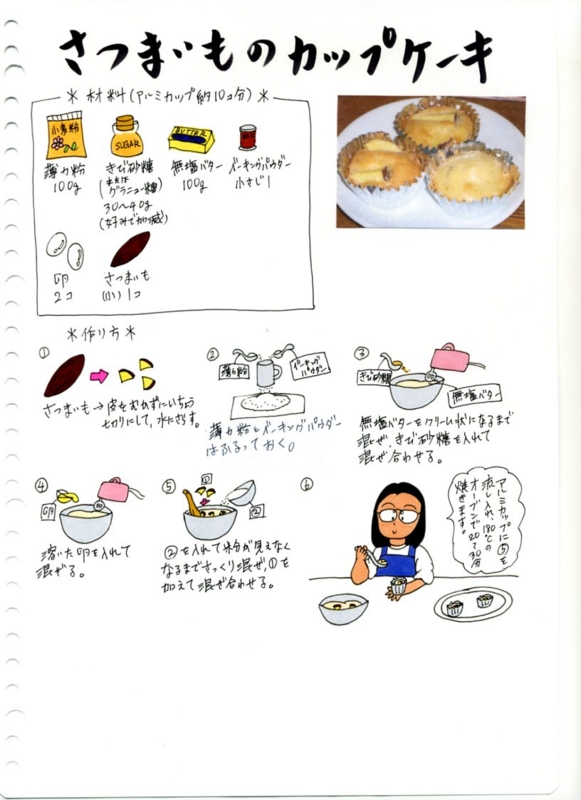 さつまいものカップケーキ
＊材料(アルミカップ約10コ分)＊
小麦粉
SUGAR
BUTTER
薄力粉
100g
きび砂糖
(または
グラニュー糖)
30〜40g
(好みで加減)
無塩バター
100g
ベーキングパウダー
小さじ1
卵
2コ
さつまいも
(小)1コ
＊作り方＊
①
さつまいも→皮をむかずにいちょう
切りにして、水にさらす。
②
薄力粉
ベーキング
パウダー
薄力粉とベーキングパウダー
はふるっておく。
③
きび砂糖
無塩バター
無塩バターをクリーム状になるまで
混ぜ、きび砂糖を入れて
混ぜ合わせる。
④
卵
溶いた卵を入れて
混ぜる。
⑤
①
②
②を入れて粉が見えなく
なるまでさっくり混ぜ、①を
加えて混ぜ合わせる。
⑥
アルミカップに⑤を
流し入れ、180℃の
オーブンで20〜30分
焼きます。